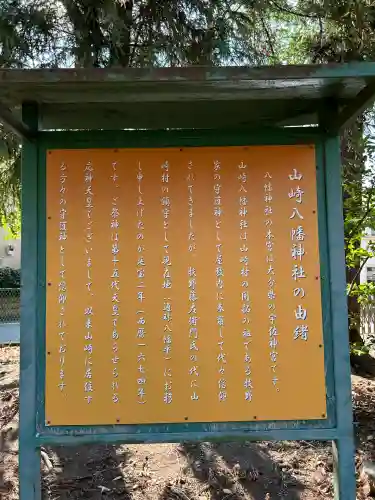 山崎八幡神社の由緒
八幡神社の本宮は大分県の宇佐神宮です。
山崎八幡神社は山崎村の開拓の祖である牧野
家の守護神として屋敷内に奉斎して代々信仰
されてきましたが、牧野藤左衛門氏の代に山
崎村の鎮守として現在地（通称八幡平）にお移
し申し上げたのが延宝二年（西暦一六七四年）
です。ご祭神は第十五代天皇であらせられる
応神天皇でございまして、以来山崎に居住す
る方々の守護神として信仰されております